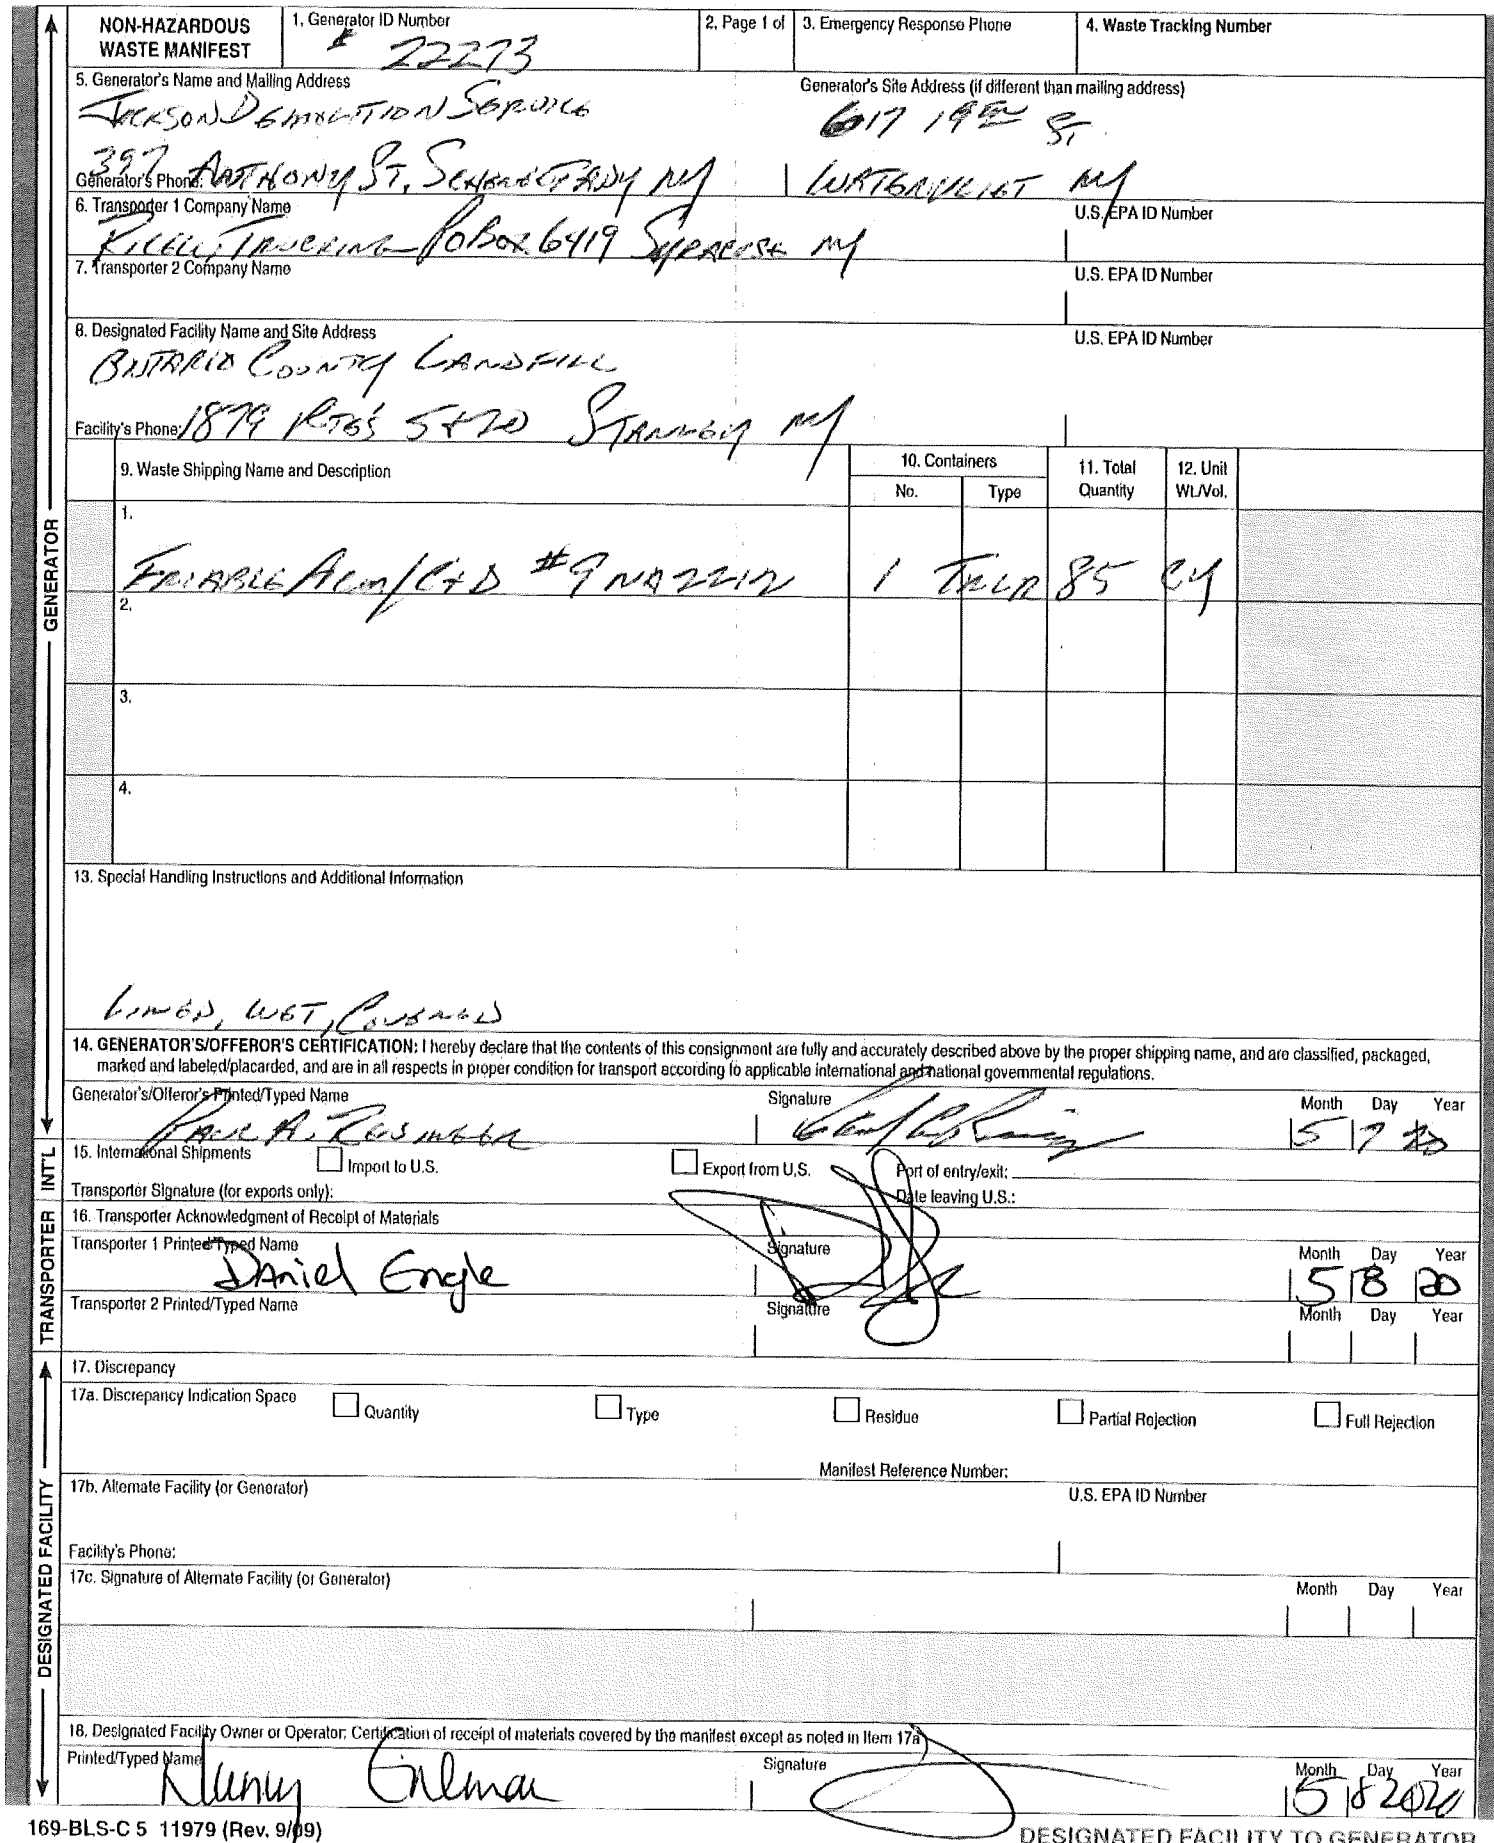 NON-HAZARDOUS WASTE MANIFEST
1. Generator ID Number
# 22273
2. Page 1 of
3. Emergency Response Phone
4. Waste Tracking Number
5. Generator's Name and Mailing Address
JACKSON DEMOLITION SERVICE
397 ANTHONY ST. SCHENECTADY NY
Generator's Phone:
Generator's Site Address (if different than mailing address)
617 19th ST
WATERVLIET NY
6. Transporter 1 Company Name
U.S. EPA ID Number
RICELLI TRUCKING PO BOX 6419 SYRACUSE NY
7. Transporter 2 Company Name
U.S. EPA ID Number
8. Designated Facility Name and Site Address
U.S. EPA ID Number
ONTARIO COUNTY LANDFILL
Facility's Phone: 1879 RTE'S 5+20 STANLEY NY
9. Waste Shipping Name and Description
10. Containers
No.
Type
11. Total Quantity
12. Unit Wt./Vol.
1.
FRIABLE ACM/C+D #9 NA2212 1 TRLR 85 CY
2.
3.
4.
13. Special Handling Instructions and Additional Information
LINED, WET, COVERED
14. GENERATOR'S/OFFEROR'S CERTIFICATION: I hereby declare that the contents of this consignment are fully and accurately described above by the proper shipping name, and are classified, packaged,
marked and labeled/placarded, and are in all respects in proper condition for transport according to applicable international and national governmental regulations.
Generator's/Offeror's Printed/Typed Name
Signature
Month Day Year
PAUL A.
5 7 20
15. International Shipments
Import to U.S.
Export from U.S.
Port of entry/exit:
Transporter Signature (for exports only):
Date leaving U.S.:
16. Transporter Acknowledgment of Receipt of Materials
Transporter 1 Printed/Typed Name
Signature
Month Day Year
Daniel Engle
5 8 20
Transporter 2 Printed/Typed Name
Signature
Month Day Year
17. Discrepancy
17a. Discrepancy Indication Space
Quantity
Type
Residue
Partial Rejection
Full Rejection
Manifest Reference Number:
17b. Alternate Facility (or Generator)
U.S. EPA ID Number
Facility's Phone:
17c. Signature of Alternate Facility (or Generator)
Month Day Year
18. Designated Facility Owner or Operator: Certification of receipt of materials covered by the manifest except as noted in Item 17a
Printed/Typed Name
Signature
Month Day Year
Nancy Gilman
5 8 2020
GENERATOR
INT'L
TRANSPORTER
DESIGNATED FACILITY
169-BLS-C 5 11979 (Rev. 9/09)
DESIGNATED FACILITY TO GENERATOR